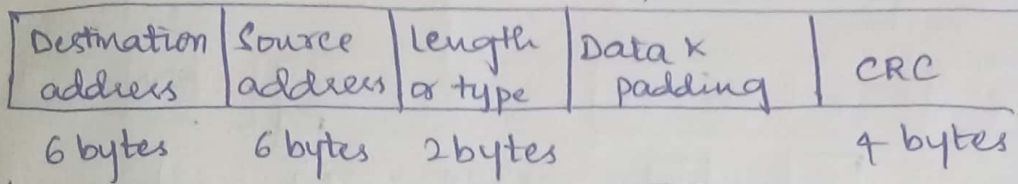 Destination address
Source address
Length or type
Data & padding
CRC
6 bytes 6 bytes 2 bytes 4 bytes